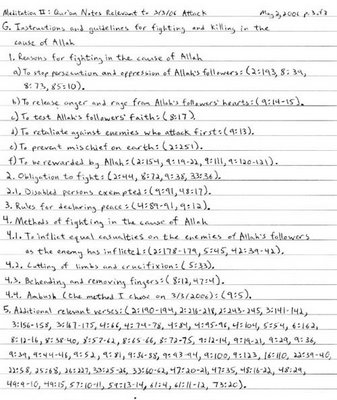 Meditation II: Qur'an Notes Relevant to 3/3/06 Attack May 2, 2006 p. 3 of 3
G. Instructions and guidelines for fighting and killing in the
cause of Allah
1. Reasons for fighting in the cause of Allah
a) To stop persecution and oppression of Allah's followers: (2:193, 8:39,
8:73, 85:10).
b) To release anger and rage from Allah's followers' hearts: (9:14-15).
c) To test Allah's followers' faith: (8:17).
d) To retaliate against enemies who attack first: (9:13).
e) To prevent mischief on earth: (2:251).
f) To be rewarded by Allah: (2:154, 9:19-22, 9:111, 9:120-121).
2. Obligation to fight: (2:44, 8:72, 9:38, 33:36).
2.1. Disabled persons exempted: (9:91, 48:17).
3. Rules for declaring peace: (4:89-91, 9:12).
4. Methods of fighting in the cause of Allah
4.1. To inflict equal casualties on the enemies of Allah's followers
as the enemy has inflicted: (2:178-179, 5:45, 42:39-42).
4.2. Cutting of limbs and crucifixion: (5:33).
4.3. Beheading and removing fingers: (8:12, 47:4).
4.4. Ambush (the method I chose on 3/3/2006): (9:5).
5. Additional relevant verses: (2:190-194, 2:216-218, 2:243-245, 3:141-142,
3:156-158, 3:167-175, 4:66, 4:74-78, 4:84, 4:95-96, 4:104, 5:54, 6:162,
8:12-16, 8:38-40, 8:57-62, 8:65-66, 8:72-75, 9:12-14, 9:19-21, 9:29, 9:36,
9:39, 9:44-46, 9:52, 9:81, 9:86-88, 9:93-94, 9:100, 9:123, 16:110, 22:39-40,
22:58, 25:68, 26:227, 33:25-26, 33:60-62, 47:20-21, 47:35, 48:16-22, 48:29,
49:9-10, 49:15, 57:10-11, 59:13-14, 61:4, 61:11-12, 73:20).